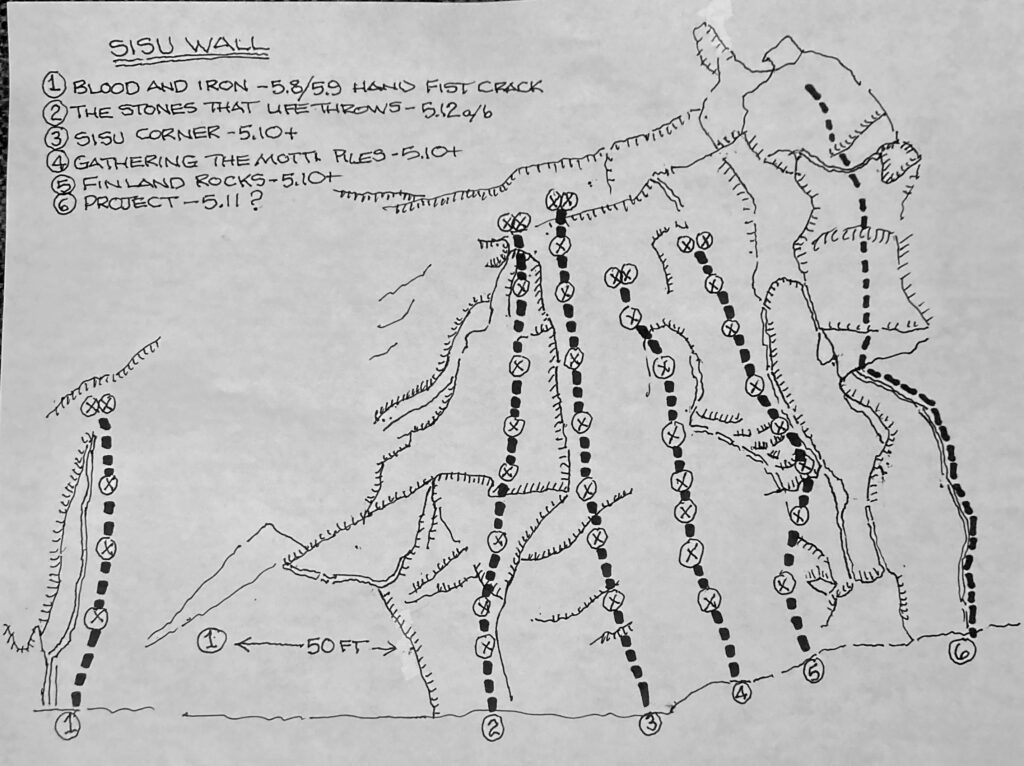 SISU WALL
① BLOOD AND IRON - 5.8/5.9 HAND FIST CRACK
② THE STONES THAT LIFE THROWS - 5.12a/b
③ SISU CORNER - 5.10+
④ GATHERING THE MOTTI PILES - 5.10+
⑤ FINLAND ROCKS - 5.10+
⑥ PROJECT - 5.11?
① 50 FT
① ② ③ ④ ⑤ ⑥